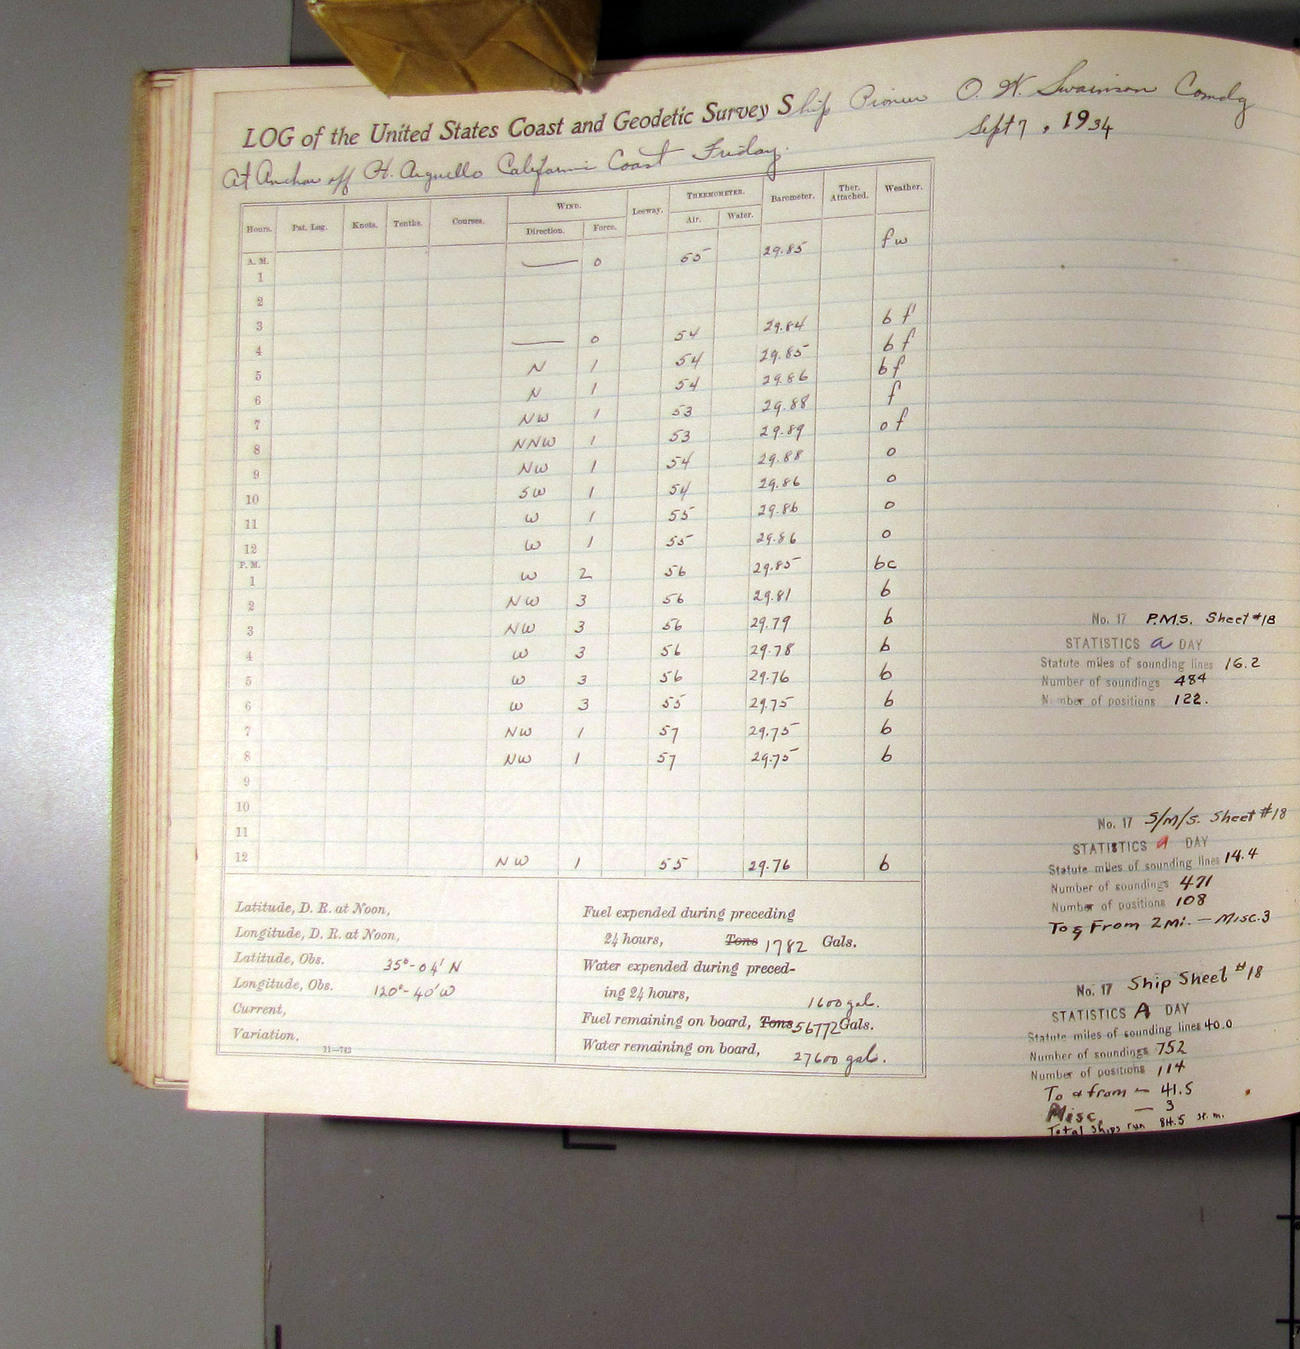 LOG of the United States Coast and Geodetic Survey Ship Pioneer O. W. Swainson Comdg
At Anchor off Pt. Arguello California Coast Friday. Sept 7, 1934
Hours. Pat. Log. Knots. Tenths. Courses. WIND. Leeway. THERMOMETER. Barometer. Ther. Attached. Weather.
Direction. Force. Air. Water.
A. M.
1 — 0 55 29.85 f w
2
3
4 — 0 54 29.84 b f
5 N 1 54 29.85 b f
6 N 1 54 29.86 b f
7 NW 1 53 29.88 f
8 NNW 1 53 29.89 o f
9 NW 1 54 29.88 o
10 SW 1 54 29.86 o
11 W 1 55 29.86 o
12 W 1 55 29.86 o
P. M.
1 W 2 56 29.85 bc
2 NW 3 56 29.81 b
3 NW 3 56 29.79 b
4 W 3 56 29.78 b
5 W 3 56 29.76 b
6 W 3 55 29.75 b
7 NW 1 57 29.75 b
8 NW 1 57 29.75 b
9
10
11
12 NW 1 55 29.76 b
Latitude, D. R. at Noon,
Longitude, D. R. at Noon,
Latitude, Obs. 35°-04' N
Longitude, Obs. 120°-40' W
Current,
Variation,
11—743
Fuel expended during preceding
24 hours, Tons 1782 Gals.
Water expended during preced-
ing 24 hours, 1600 gal.
Fuel remaining on board, Tons 56772 Gals.
Water remaining on board, 27600 gal.
No. 17 P.M.S. Sheet #18
STATISTICS a DAY
Statute miles of sounding lines 16.2
Number of soundings 484
Number of positions 122.
No. 17 S/M/S. Sheet #18
STATISTICS a DAY
Statute miles of sounding lines 14.4
Number of soundings 471
Number of positions 108
To & From 2 mi. — Misc. 3
No. 17 Ship Sheet #18
STATISTICS A DAY
Statute miles of sounding lines 40.0
Number of soundings 752
Number of positions 114
To & from — 41.5
Misc. — 3
Total ships run 84.5 st. m.